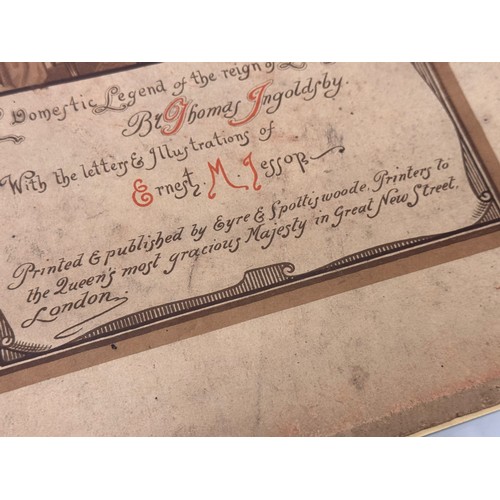 Domestic Legend of the reign of
By Thomas Ingoldsby.
With the letters & Illustrations of
Ernest. M. Jessop
Printed & published by Eyre & Spottiswoode, Printers to
the Queen's most gracious Majesty in Great New Street,
London.